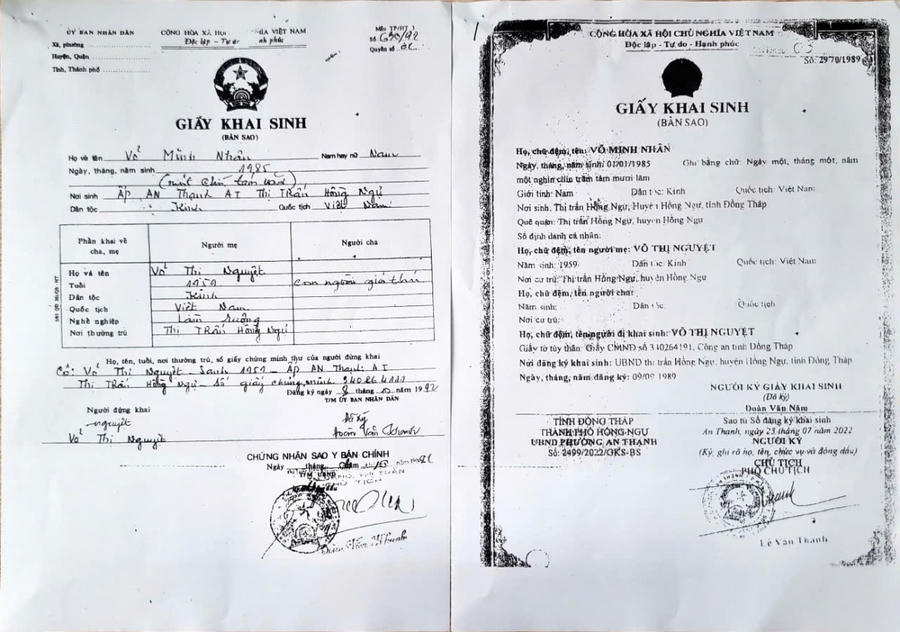 ỦY BAN NHÂN DÂN
Xã, phường
Huyện, Quận
Tỉnh, Thành phố
CỘNG HÒA XÃ HỘI CHỦ NGHĨA VIỆT NAM
Độc lập - Tự do - Hạnh phúc
Mẫu TP/HT 1
Số 630/92
Quyển số
GIẤY KHAI SINH
(BẢN SAO)
Họ và tên Võ Minh Nhân Nam hay nữ Nam
Ngày, tháng, năm sinh 1985
Nơi sinh Ấp AN Thạnh A I Thị Trấn Hồng Ngự
Dân tộc Kinh Quốc tịch Việt Nam
Phần khai về cha, mẹ Người mẹ Người cha
Họ và tên Võ Thị Nguyệt
Tuổi 1959 con ngoài giá thú
Dân tộc Kinh
Quốc tịch Việt Nam
Nghề nghiệp Làm ruộng
Nơi thường trú Thị Trấn Hồng Ngự
Họ, tên, tuổi, nơi thường trú, số giấy chứng minh thư của người đứng khai
Cô: Võ Thị Nguyệt - Sanh 1959 - Ấp AN Thạnh A I
Thị Trấn Hồng Ngự - Số giấy chứng minh
Đăng ký ngày
T/M ỦY BAN NHÂN DÂN
Người đứng khai
nguyệt
Võ Thị Nguyệt
Đã ký
CHỨNG NHẬN SAO Y BẢN CHÍNH
Ngày tháng năm
T/M UBND
CỘNG HÒA XÃ HỘI CHỦ NGHĨA VIỆT NAM
Độc lập - Tự do - Hạnh phúc
Số: 2970/1989
GIẤY KHAI SINH
(BẢN SAO)
Họ, chữ đệm, tên: VÕ MINH NHÂN
Ngày, tháng, năm sinh: 01/01/1985 Ghi bằng chữ: Ngày một, tháng một, năm
một nghìn chín trăm tám mươi lăm
Giới tính: Nam Dân tộc: Kinh Quốc tịch: Việt Nam
Nơi sinh: Thị trấn Hồng Ngự, Huyện Hồng Ngự, tỉnh Đồng Tháp
Quê quán: Thị trấn Hồng Ngự, huyện Hồng Ngự
Số định danh cá nhân:
Họ, chữ đệm, tên người mẹ: VÕ THỊ NGUYỆT
Năm sinh: 1959 Dân tộc: Kinh Quốc tịch: Việt Nam
Nơi cư trú: Thị trấn Hồng Ngự, huyện Hồng Ngự
Họ, chữ đệm, tên người cha:
Năm sinh: Dân tộc: Quốc tịch:
Nơi cư trú:
Họ, chữ đệm, tên người đi khai sinh: VÕ THỊ NGUYỆT
Giấy tờ tùy thân: Giấy CMND số 340264191, Công an tỉnh Đồng Tháp
Nơi đăng ký khai sinh: UBND thị trấn Hồng Ngự, huyện Hồng Ngự, tỉnh Đồng Tháp
Ngày, tháng, năm đăng ký: 09/09/1989
NGƯỜI KÝ GIẤY KHAI SINH
(Đã ký)
Đoàn Văn Năm
TỈNH ĐỒNG THÁP
THÀNH PHỐ HỒNG NGỰ
UBND PHƯỜNG AN THẠNH
Số: 2499/2022/GKS-BS
Sao từ Sổ đăng ký khai sinh
An Thạnh, ngày 25 tháng 07 năm 2022
NGƯỜI KÝ
(Ký, ghi rõ họ, tên, chức vụ và đóng dấu)
CHỦ TỊCH
PHÓ CHỦ TỊCH
Lê Văn Thanh